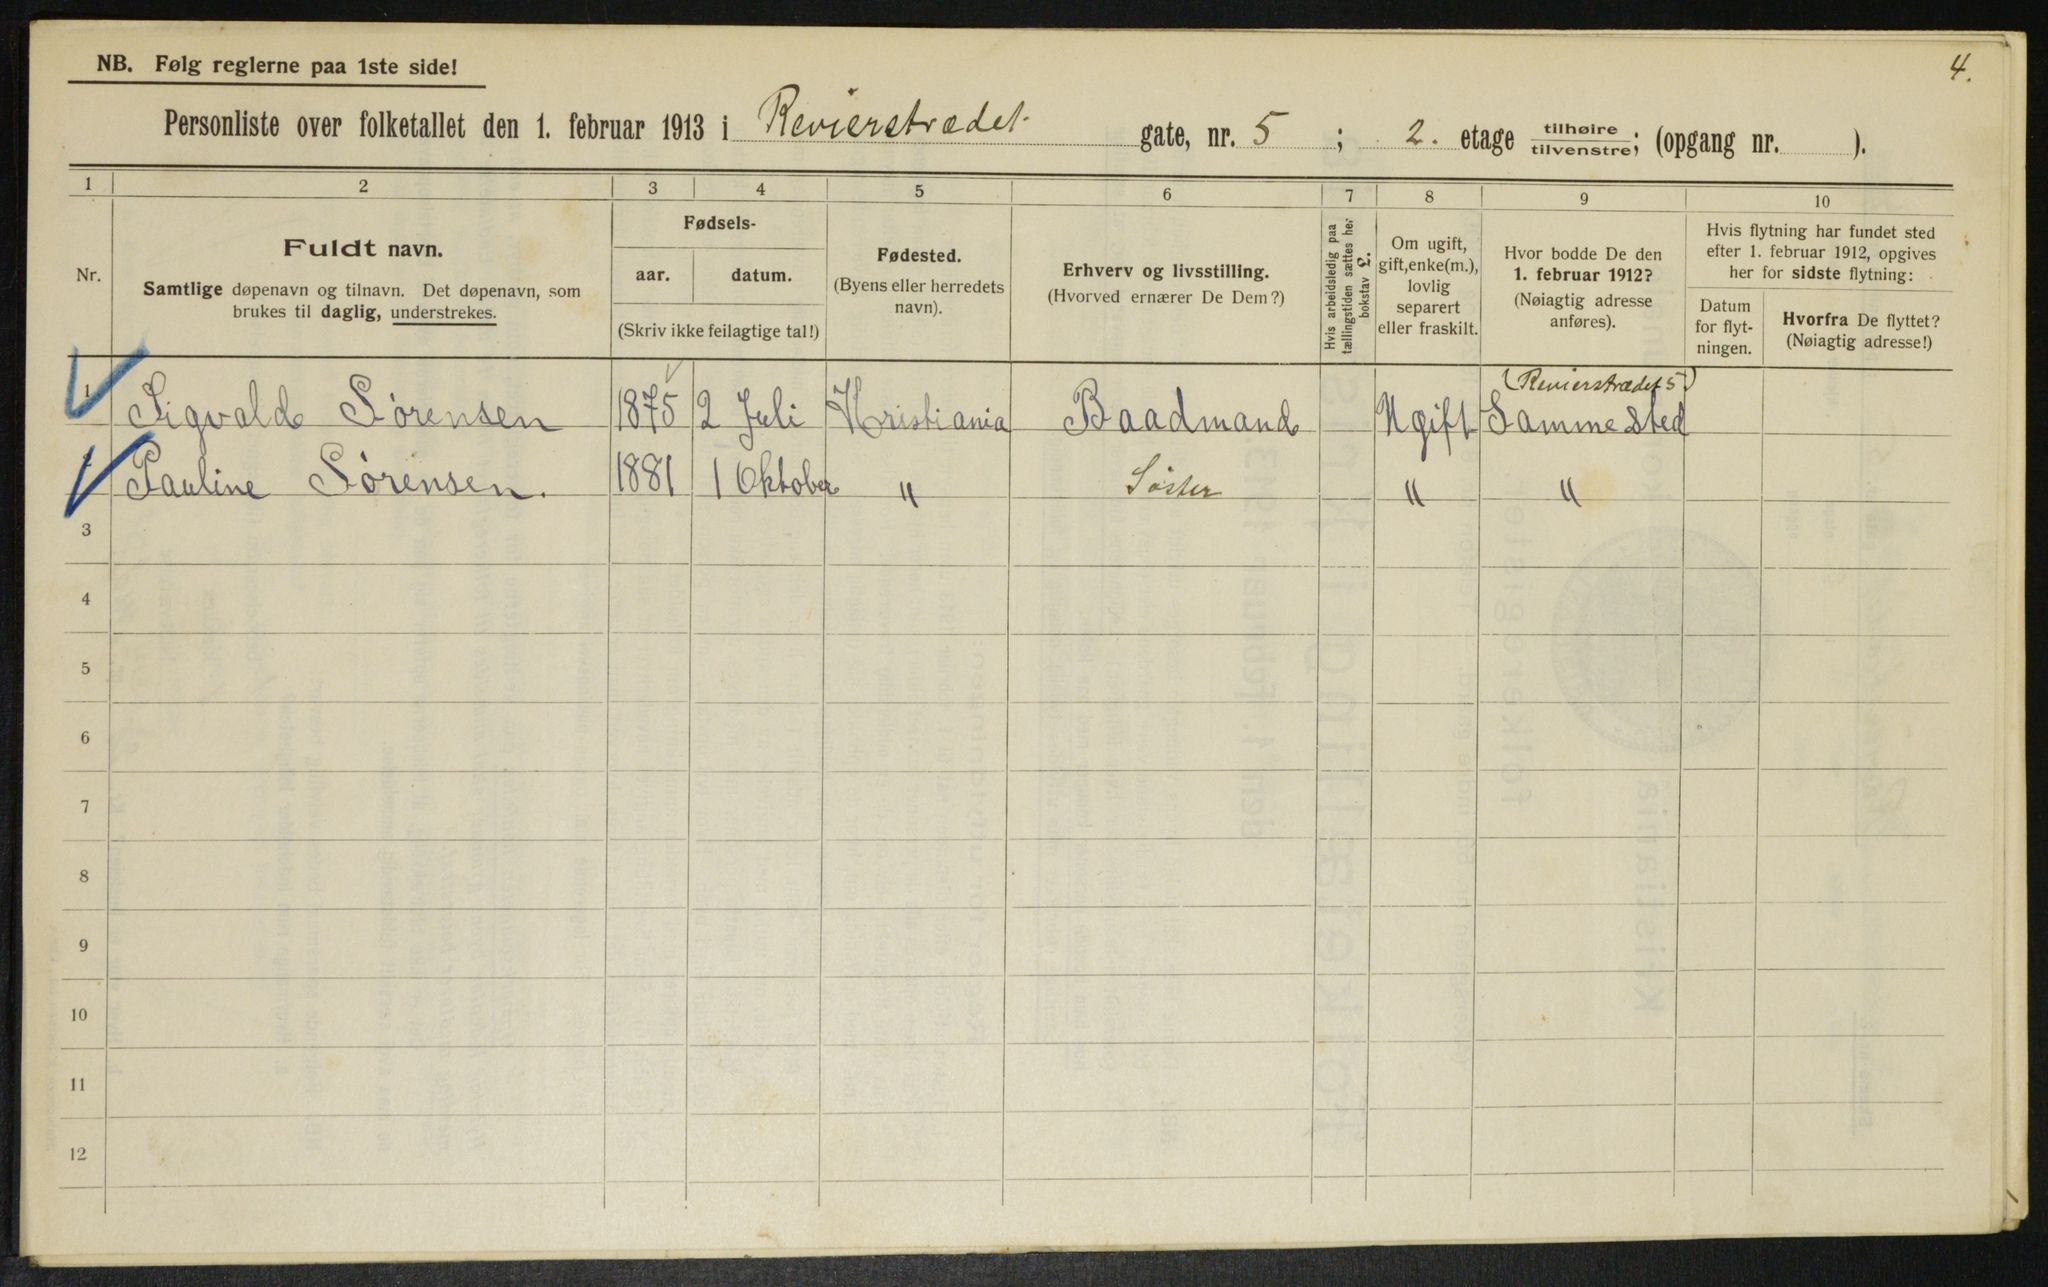 4.
NB. Følg reglerne paa 1ste side!
Personliste over folketallet den 1. februar 1913 i Revierstrædet gate, nr. 5 ; 2. etage tilhøire tilvenstre; (opgang nr. ).
1 2 3 4 5 6 7 8 9 10
Nr.
Fuldt navn.
Samtlige døpenavn og tilnavn. Det døpenavn, som
brukes til daglig, understrekes.
Fødsels-
aar. datum.
(Skriv ikke feilagtige tal!)
Fødested.
(Byens eller herredets
navn).
Erhverv og livsstilling.
(Hvorved ernærer De Dem?)
Hvis arbeidsledig paa
tællingstiden sættes her
bokstav L.
Om ugift,
gift, enke(m.),
lovlig
separert
eller fraskilt.
Hvor bodde De den
1. februar 1912?
(Nøiagtig adresse
anføres).
Hvis flytning har fundet sted
efter 1. februar 1912, opgives
her for sidste flytning:
Datum
for flyt-
ningen.
Hvorfra De flyttet?
(Nøiagtig adresse!)
(Revierstrædet 5)
1 Sigvald Sørensen 1875 2 Juli Kristiania Baadmand Ugift Samme Sted
2 Pauline Sørensen. 1881 1 Oktober " Søster " "
3
4
5
6
7
8
9
10
11
12